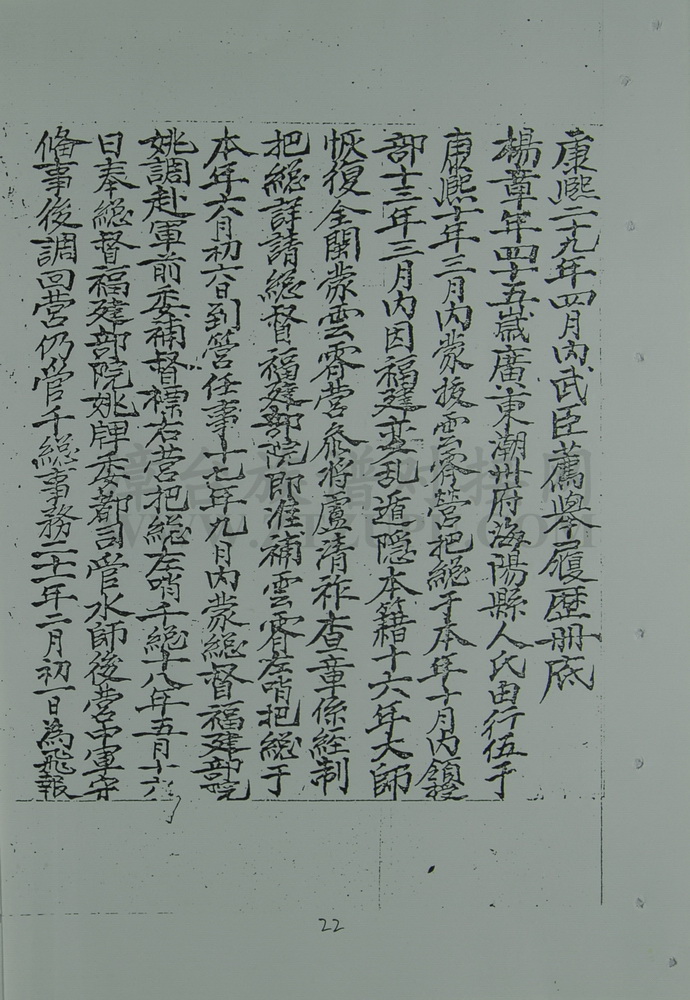 康熈二十九年四月内武臣薦舉履歴册底
楊章年四十五嵗廣東潮州府海陽縣人氏由行伍于
康熈十年三月内蒙拔雲霄營把總于本年十月内領
部十三年三月内因福建变乱遁隐本籍十六年大師
恢復全閩蒙雲霄营叅将盧清祚查章係經制
把総詳請総督福建部院郎准補雲霄左哨把総于
本年六月初六日到营任事十七年九月内蒙総督福建部院
姚調赴軍前委補督標右营把総左哨千総十八年五月十六
日奉総督福建部院姚牌委都司管水師後营中軍守
俻事後調回营仍管千総事務二十一年二月初一日為飛報
22